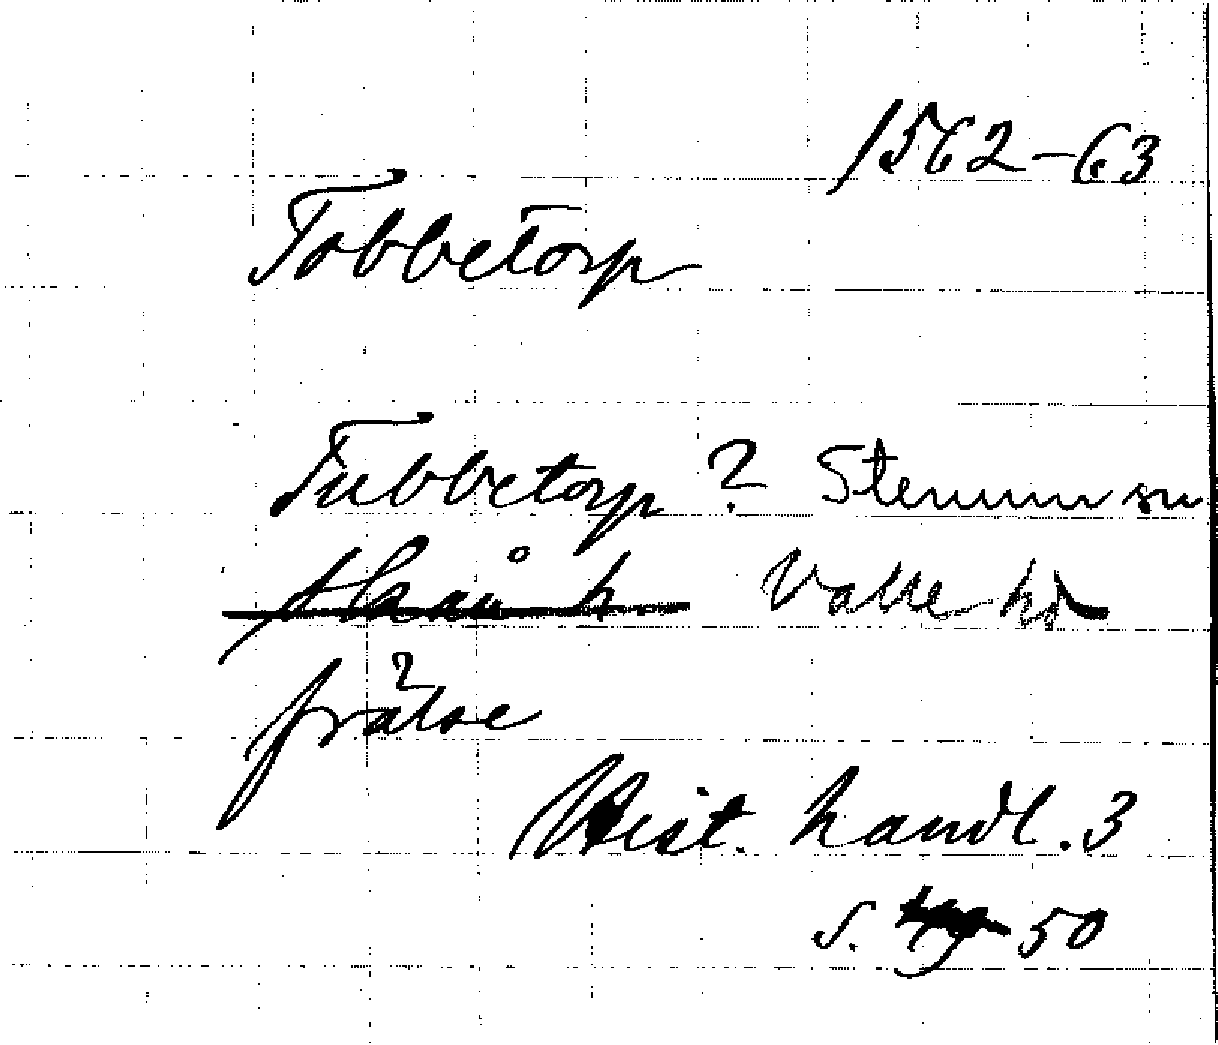 1562-63
Tobbetorp
Tubbetorp ? Stenum sn
Skånh h Valle hd
frälse
Hist. handl. 3
s. 49 50